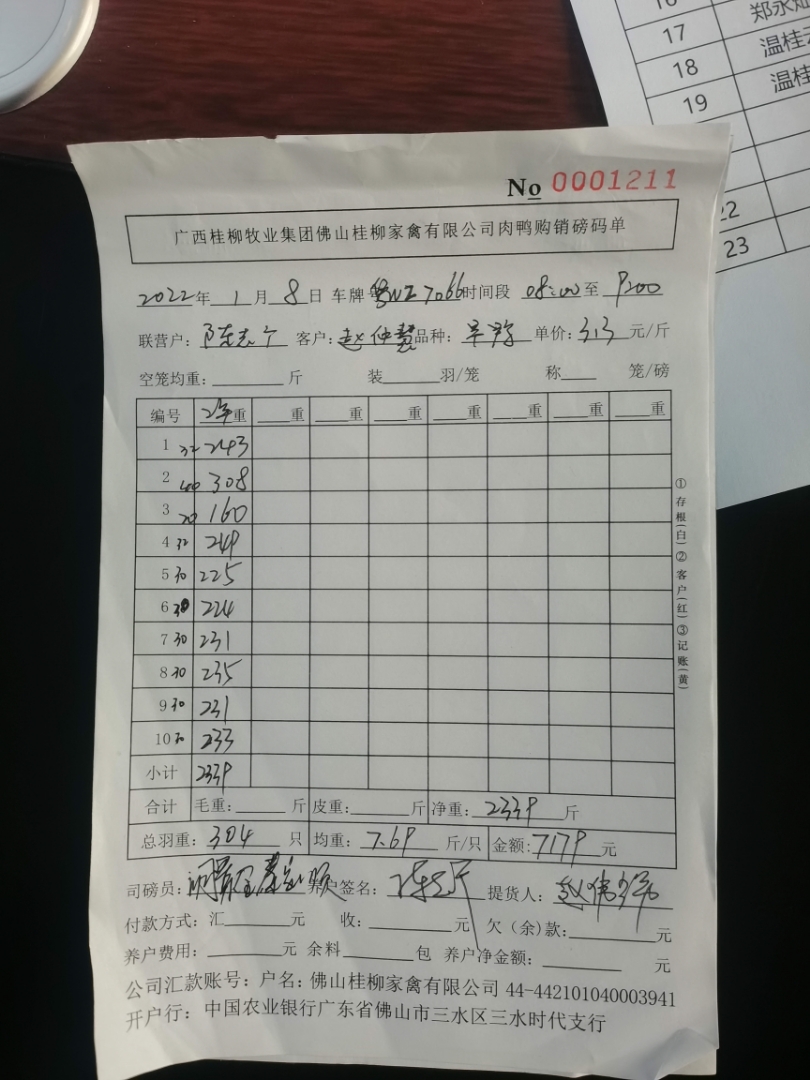 16 郑永灿
17 温桂
18 温桂
19
22
23
No 0001211
广西桂柳牧业集团佛山桂柳家禽有限公司肉鸭购销磅码单
2022年 1月 8日 车牌 7066 时间段 08:00 至 9200
联营户: 陈志 客户: 赵仲慧 品种: 单价: 3.13 元/斤
空笼均重: 斤 装 羽/笼 称 笼/磅
编号 重 重 重 重 重 重 重 重
1 32 243
2 40 308
3 20 160
4 32 249
5 30 225
6 30 224
7 30 231
8 30 235
9 30 231
10 30 233
小计 2339
合计 毛重: 斤 皮重: 斤 净重: 2339 斤
总羽重: 304 只 均重: 7.69 斤/只 金额: 7179 元
司磅员: 养户签名: 提货人:
付款方式: 汇 元 收: 元 欠(余)款: 元
养户费用: 元 余料 包 养户净金额: 元
公司汇款账号: 户名: 佛山桂柳家禽有限公司 44-442101040003941
开户行: 中国农业银行广东省佛山市三水区三水时代支行
①存根(白)②客户(红)③记账(黄)